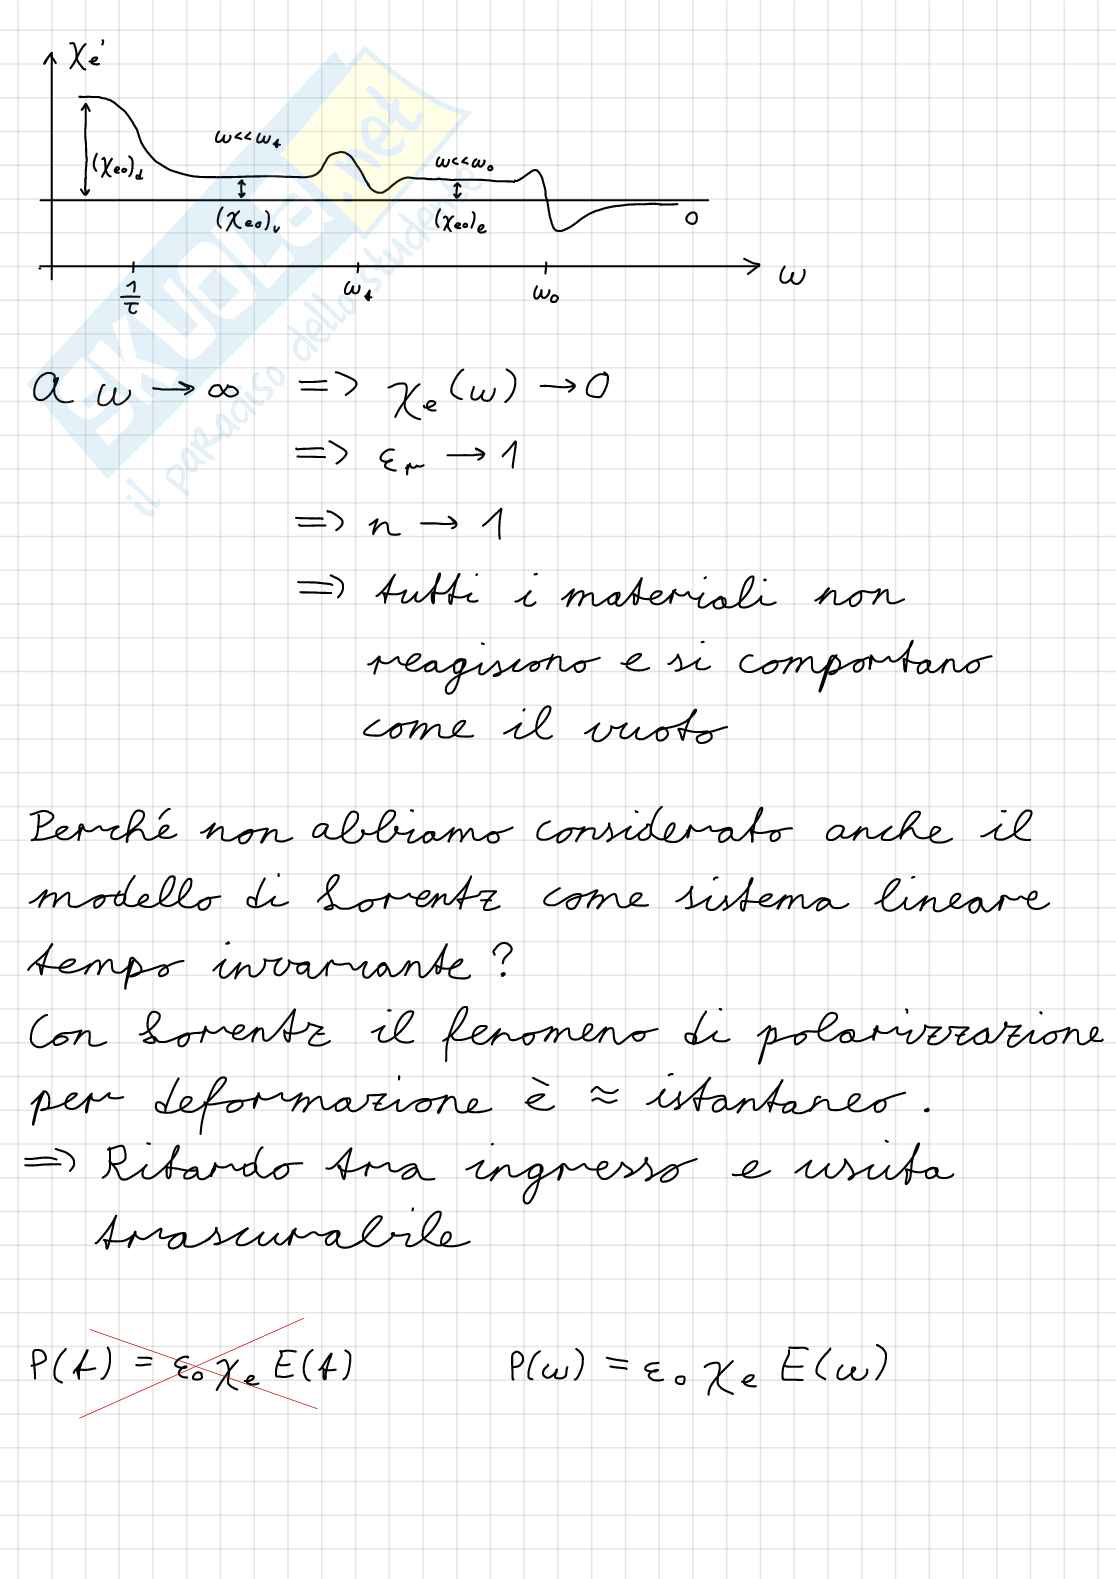 χe'
ω<<ωt
ω<<ω0
(χe0)d
(χe0)v
(χe0)e
0
1/τ
ωt
ω0
ω
SKUOLA.net
il paradiso dello studente
a ω → ∞ => χe(ω) → 0
=> εr → 1
=> n → 1
=> tutti i materiali non
reagiscono e si comportano
come il vuoto
Perché non abbiamo considerato anche il
modello di Lorentz come sistema lineare
tempo invariante?
Con Lorentz il fenomeno di polarizzazione
per deformazione è ≈ istantaneo.
=> Ritardo tra ingresso e uscita
trascurabile
P(t) = ε0 χe E(t) P(ω) = ε0 χe E(ω)